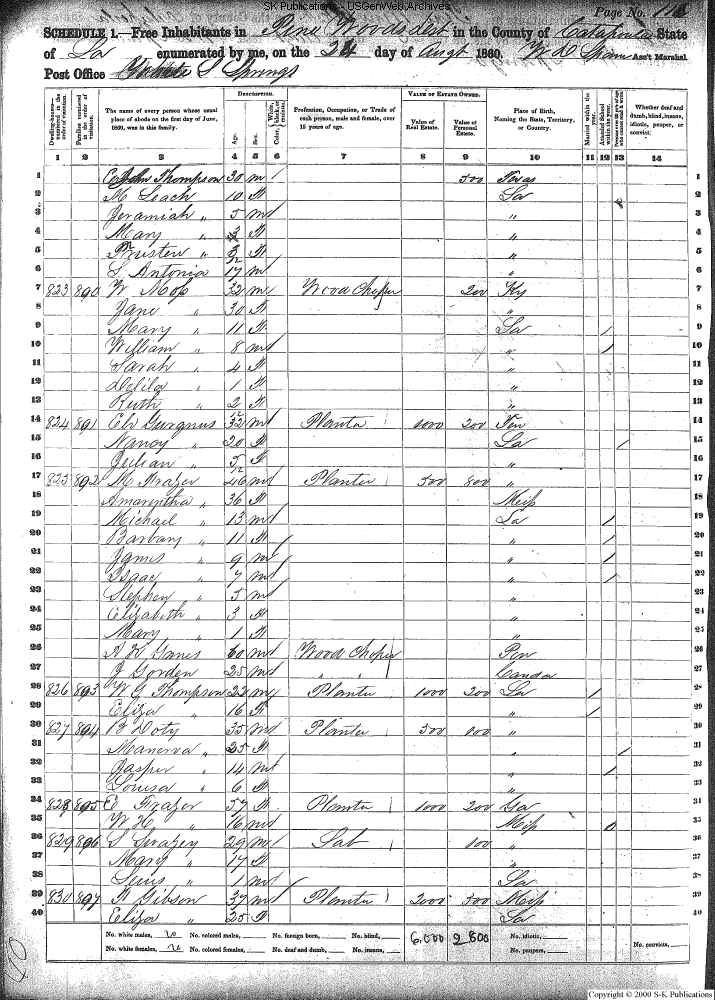 SK Publications - USGenWeb Archives
Page No.
SCHEDULE 1.—Free Inhabitants in Pine Woods dist in the County of State
of La enumerated by me, on the 24 day of Augt 1860. Ass't Marshal.
Post Office Springs
DESCRIPTION. VALUE OF ESTATE OWNED.
Dwelling-houses—numbered in the order of visitation. Families numbered in the order of visitation. The name of every person whose usual place of abode on the first day of June, 1860, was in this family. Age. Sex. Color, White, black, or mulatto. Profession, Occupation, or Trade of each person, male and female, over 15 years of age. Value of Real Estate. Value of Personal Estate. Place of Birth, Naming the State, Territory, or Country. Married within the year. Attended School within the year. Whether deaf and dumb, blind, insane, idiotic, pauper, or convict.
1 2 3 4 5 6 7 8 9 10 11 12 13 14
1 John Thompson 30 m 500 Texas 1
2 M Leach 10 f La 2
3 Jeramiah " 5 m " 3
4 Mary " f " 4
5 " f " 5
6 S Antonia 17 m " 6
7 823 890 W 32 m Wood Choper 200 Ky 7
8 Jane " 30 f " 8
9 Mary " 11 f La / 9
10 William " 8 m " / 10
11 Sarah " 4 f " 11
12 Delila " 1 f " 12
13 Ruth " 2 f " 13
14 824 891 Eli 32 m Planter 200 Ten 14
15 Nancy " 20 f La / 15
16 Julian " f " 16
17 825 892 M Frazer 46 m Planter 500 800 " 17
18 Amarintha " 36 f Miss 18
19 Michail " 13 m La / 19
20 Barbary " 11 f " / 20
21 James " 9 m " / 21
22 Isaac " 7 m " / 22
23 Stephen " 5 m " 23
24 Elizabeth " 3 f " 24
25 Mary " 1 f " 25
26 60 m Wood Choper Pen 26
27 J Gorden 25 m " " Canda 27
28 826 893 W G Thompson 22 m Planter 1000 200 La / 28
29 Eliza " 16 f " / 29
30 827 894 B Doty 35 m Planter 500 " 30
31 Manerva " 25 f " / 31
32 Jasper " 14 m " / 32
33 Louisa " 6 f " 33
34 828 895 E Frazer 57 f Planter 1000 200 Ga 34
35 W H " 16 m Miss 35
36 829 896 S 29 m Lab 100 " 36
37 Mary " 17 f " 37
38 " 1 m La 38
39 830 897 R Gibson 37 m Planter 2000 500 Miss 39
40 Eliza " 25 f La 40
No. white males, No. colored males, No. foreign born, No. blind, 6,000 2 800 No. idiotic,
No. white females, No. colored females, No. deaf and dumb, No. insane, No. paupers, No. convicts,
Copyright © 2000 S-K Publications